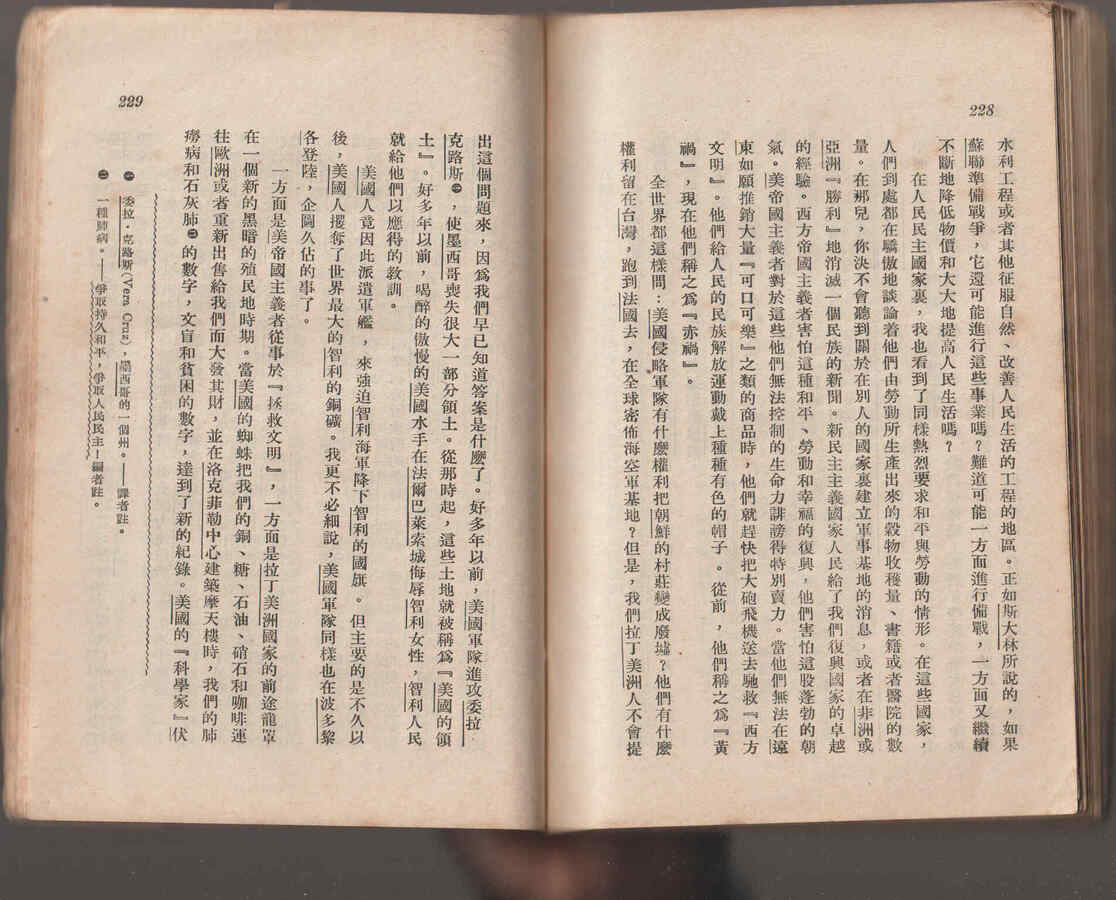 228
水利工程或者其他征服自然、改善人民生活的工程的地區。正如斯大林所說的，如果
蘇聯準備戰爭，它還可能進行這些事業嗎？難道可能一方面進行備戰，一方面又繼續
不斷地降低物價和大大地提高人民生活嗎？
在人民民主國家裏，我也看到了同樣熱烈要求和平與勞動的情形。在這些國家，
人們到處都在驕傲地談論着他們由勞動所生產出來的穀物收穫量、書籍或者醫院的數
量。在那兒，你決不會聽到關於在別人的國家裏建立軍事基地的消息，或者在非洲或
亞洲『勝利』地消滅一個民族的新聞。新民主主義國家人民給了我們復興國家的卓越
的經驗。西方帝國主義者害怕這種和平、勞動和幸福的復興，他們害怕這股蓬勃的朝
氣。美帝國主義者對於這些他們無法控制的生命力誹謗得特別賣力。當他們無法在遠
東如願推銷大量『可口可樂』之類的商品時，他們就趕快把大砲飛機送去馳救『西方
文明』。他們給人民的民族解放運動戴上種種有色的帽子。從前，他們稱之爲『黃
禍』，現在他們稱之爲『赤禍』。
全世界都這樣問：美國侵略軍隊有什麽權利把朝鮮的村莊變成廢墟？他們有什麽
權利留在台灣，跑到法國去，在全球密佈海空軍基地？但是，我們拉丁美洲人不會提
229
出這個問題來，因爲我們早已知道答案是什麽了。好多年以前，美國軍隊進攻委拉·
克路斯㊀，使墨西哥喪失很大一部分領土。從那時起，這些土地就被稱爲『美國的領
土』。好多年以前，喝醉的傲慢的美國水手在法爾巴萊索城侮辱智利女性，智利人民
就給他們以應得的教訓。
美國人竟因此派遣軍艦，來強迫智利海軍降下智利的國旗。但主要的是不久以
後，美國人攫奪了世界最大的智利的銅礦。我更不必細說，美國軍隊同樣也在波多黎
各登陸，企圖久佔的事了。
一方面是美帝國主義者從事於『拯救文明』，一方面是拉丁美洲國家的前途籠罩
在一個新的黑暗的殖民地時期。當美國的蜘蛛把我們的銅、糖、石油、硝石和咖啡運
往歐洲或者重新出售給我們而大發其財，並在洛克菲勒中心建築摩天樓時，我們的肺
癆病和石灰肺㊁的數字，文盲和貧困的數字，達到了新的紀錄。美國的『科學家』伏
㊀ 委拉·克路斯(Vera Crus)，墨西哥的一個州。——譯者註。
㊁ 一種肺病。——爭取持久和平，爭取人民民主！編者註。